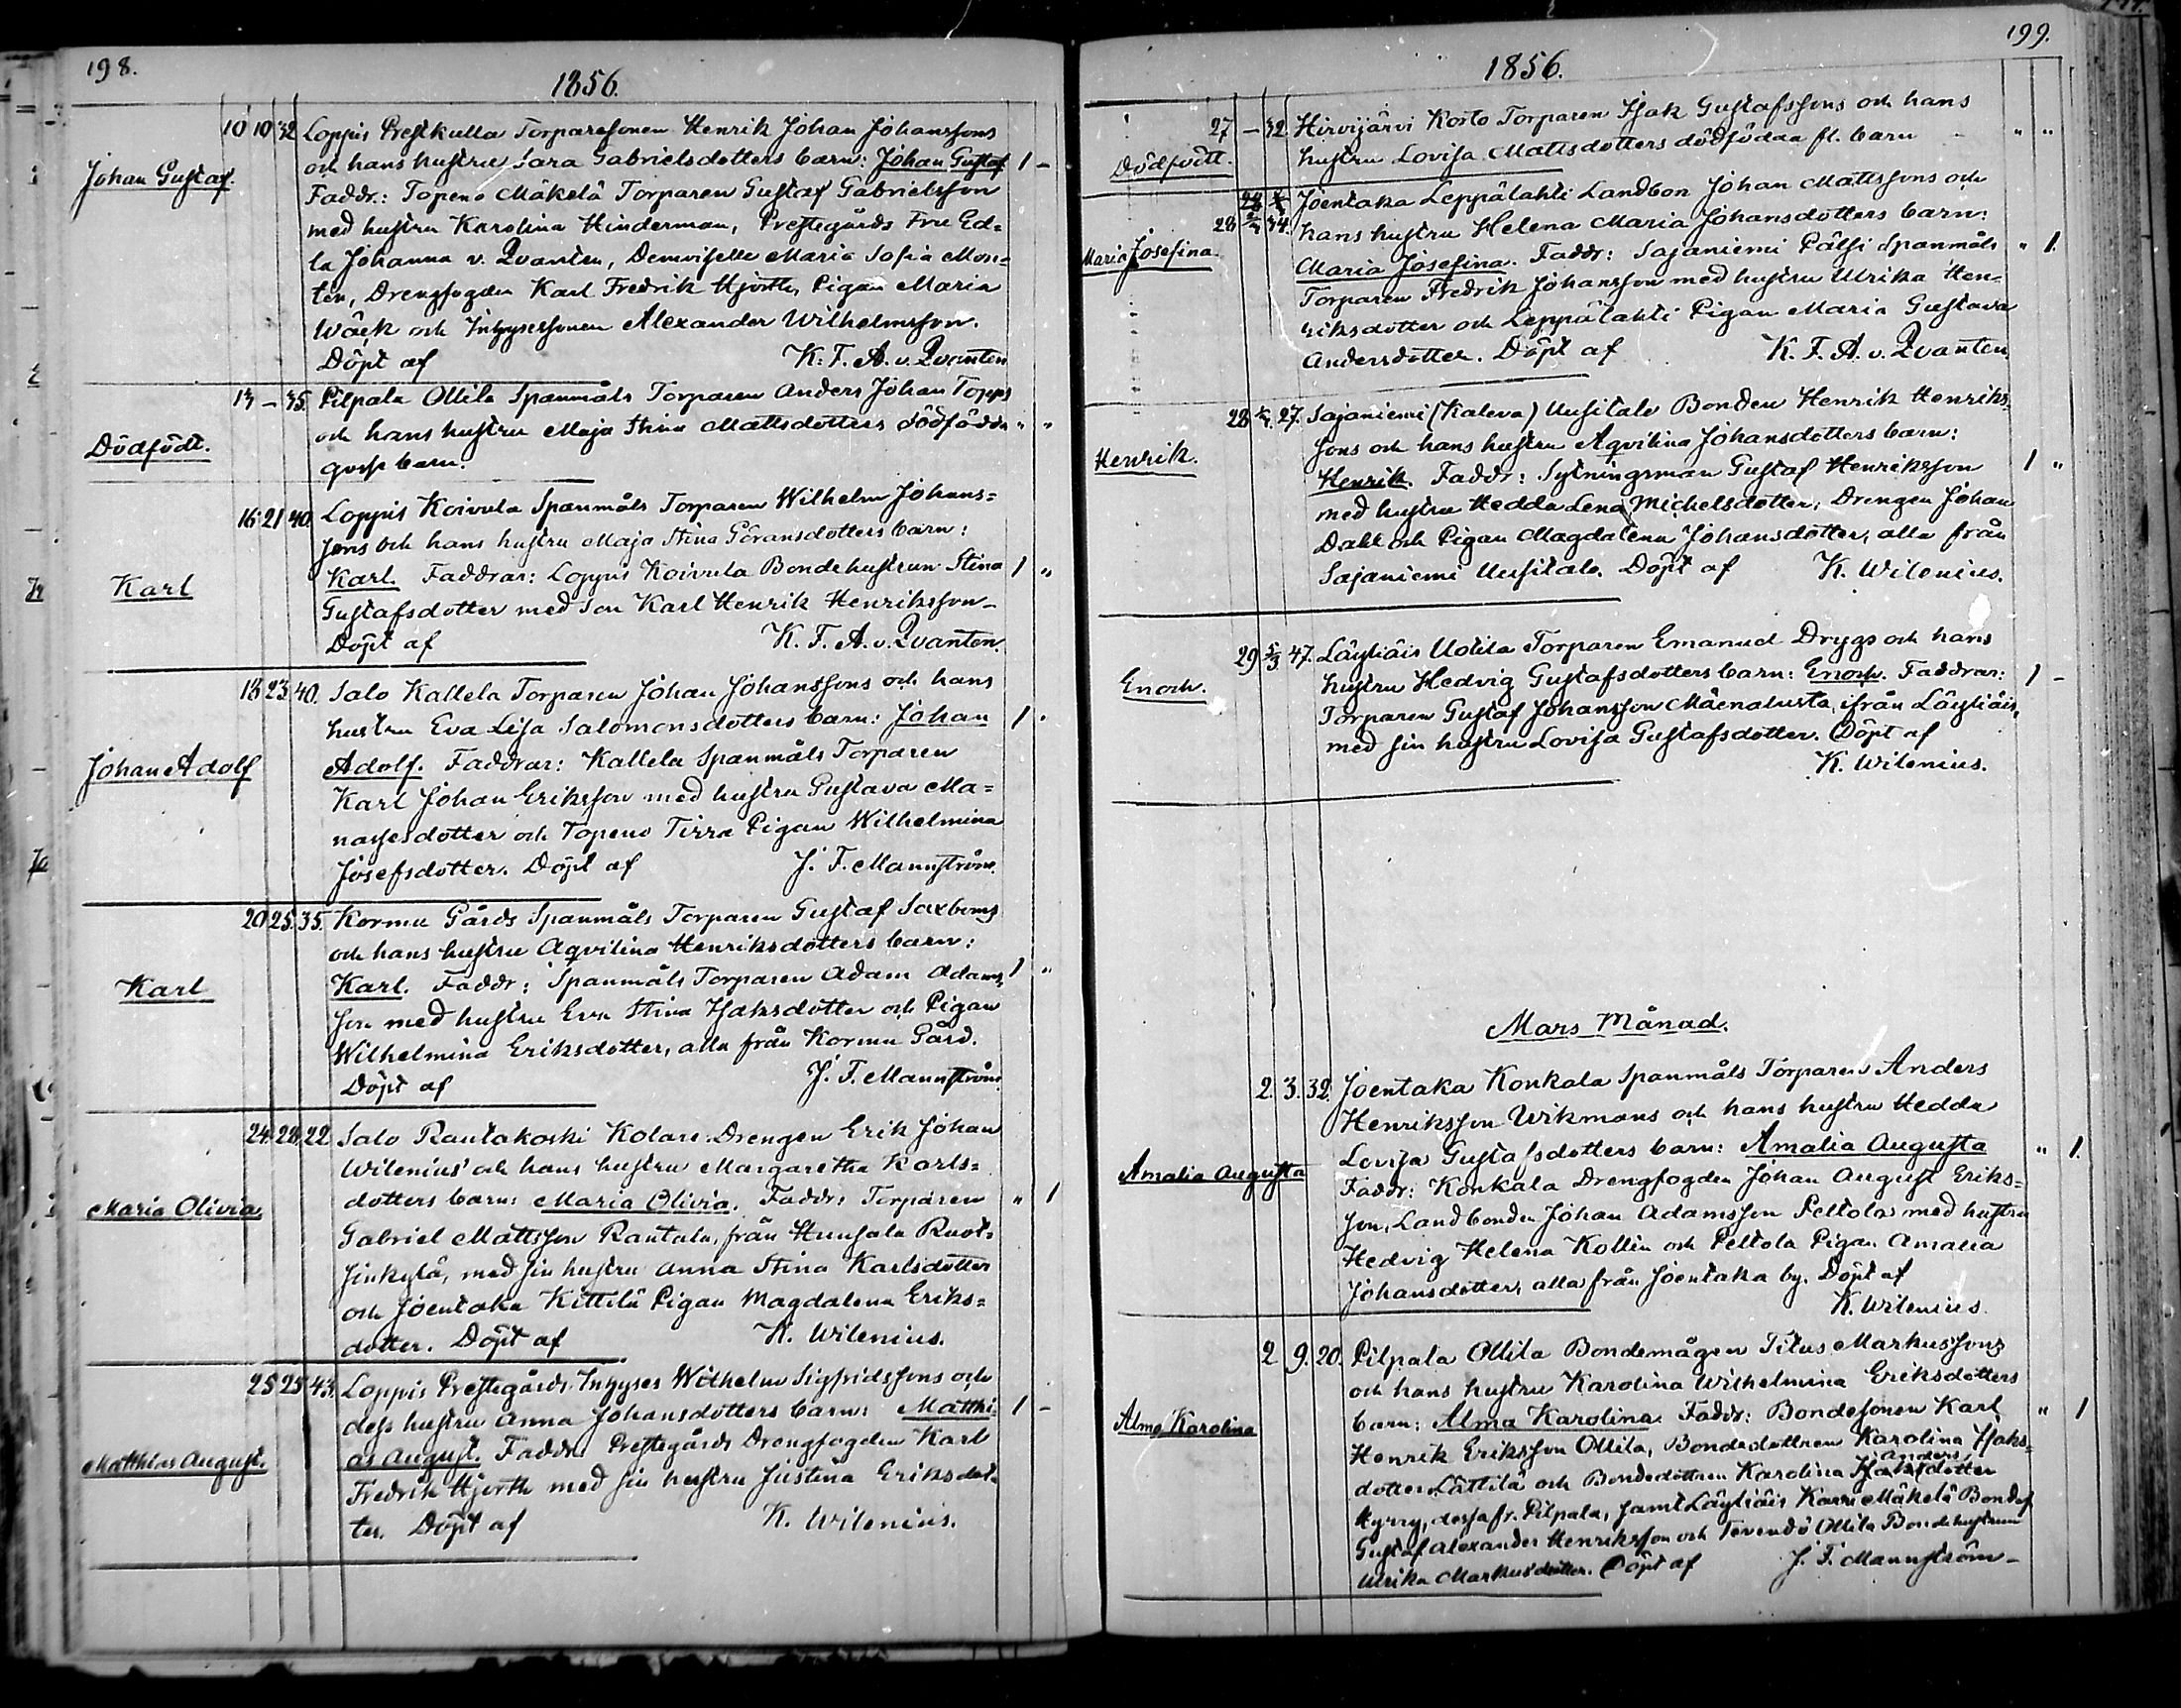 198.
1856.
10 10 32 Loppis Prestkulla Torparesonen Henrik Johan Johanssons
och hans hustru Sara Gabrielsdotters barn: Johan Gustaf 1 -
Johan Gustaf.
Faddr.: Topeno Mäkelä Torparen Gustaf Gabrielsson
med hustru Karolina Hinderman, Prestegårds Fru Ed=
la Johanna v. Qvanten, Demoiselle Maria Sofia Mon=
tén, Drengfogden Karl Fredrik Hjorth, Pigan Maria
Wäck och Inhysessonen Alexander Wilhelmsson.
Döpt af K. F. A. v. Qvanten
13 - 35. Pilpala Ollila Spanmåls Torparen Anders Johan Topps
och hans hustru Maja Stina Mattsdotters dödfödda " "
Dödfödt.
gosse barn.
16 21 40. Loppis Koivula Spanmåls Torparen Wilhelm Johans=
sons och hans hustru Maja Stina Göransdotters barn:
Karl
Karl. Faddrar: Loppis Koivula Bondehustrun Stina 1 "
Gustafsdotter med son Karl Henrik Henriksson_
Döpt af K. F. A. v. Qvanten.
18 23 40. Salo Kallela Torparen Johan Johanssons och hans
hustru Eva Lisa Salomonsdotters barn: Johan 1 "
Johan Adolf
Adolf. Faddrar: Kallela Spanmåls Torparen
Karl Johan Eriksson med hustru Gustava Ma=
nassesdotter och Topeno Tirra Pigan Wilhelmina
Josefsdotter. Döpt af J. F. Mannström.
20 25. 35. Kormu Gårds Spanmåls Torparen Gustaf Saxbergs
och hans hustru Aqvilina Henriksdotters barn:
Karl
Karl. Faddr: Spanmåls Torparen Adam Adams= 1 "
son med hustru Eva Stina Isaksdotter och Pigan
Wilhelmina Eriksdotter, alla från Kormu Gård.
Döpt af J. F. Mannström
24. 28. 22 Salo Rautakoski Kolare-Drengen Erik Johan
Wilenius' och hans hustru Margaretha Karls=
Maria Olivia
dotters barn: Maria Olivia. Faddr: Torparen " 1
Gabriel Mattsson Rantala, från Hunsala Ruot=
sinkylä, med sin hustru Anna Stina Karlsdotter
och Joentaka Kittilä Pigan Magdalena Eriks=
dotter. Döpt af K. Wilenius.
25 25 43. Loppis Prestegårds Inhyses Wilhelm Sigfridssons och
dess hustru Anna Johansdotters barn: Matthi= 1 -
Matthias August.
as August. Faddr: Prestegårds Drengfogden Karl
Fredrik Hjorth med sin hustru Justina Eriksdot=
ter. Döpt af K. Wilenius.
199.
1856.
27 - 32. Hirvijärvi Korto Torparen Isak Gustafssons och hans
Dödfödt.
hustru Lovisa Mattsdotters dödfödda fl. barn - " "
28 Joentaka Leppälahti Landbon Johan Mattssons och
28 2/3 34. hans hustru Helena Maria Johansdotters barn:
Maria Josefina.
Maria Josefina. Faddr: Sajaniemi Pälsi Spanmåls " 1.
Torparen Fredrik Johansson med hustru Ulrika Hen=
riksdotter och Leppälahti Pigan Maria Gustava
Andersdotter. Döpt af K. F. A. v. Qvanten.
28 27. Sajaniemi (Kaleva) Uusitalo Bonden Henrik Henriks=
sons och hans hustru Aqvilina Johansdotters barn:
Henrik.
Henrik. Faddr: Sytningsman Gustaf Henriksson 1 "
med hustru Hedda Lena Michelsdotter, Drengen Johan
Dahl och Pigan Magdalena Johansdotter, alla från
Sajaniemi Uusitalo. Döpt af K. Wilenius.
29 5/3 47. Läyliäis Uotila Torparen Emanuel Drygs och hans
Enoch.
hustru Hedvig Gustafsdotters barn: Enoch. Faddrar: 1 -
Torparen Gustaf Johansson Mäenalusta, ifrån Läyliäis,
med sin hustru Lovisa Gustafsdotter. Döpt af
K. Wilenius.
Mars Månad.
2. 3. 32. Joentaka Konkala Spanmåls Torparen Anders
Henriksson Wikmans och hans hustru Hedda
Amalia Augusta
Lovisa Gustafsdotters barn: Amalia Augusta " 1.
Faddr: Konkala Drengfogden Johan August Eriks=
son, Landbonden Johan Adamsson Peltola med hustru
Hedvig Helena Kollin och Peltola Pigan Amalia
Johansdotter, alla från Joentaka by. Döpt af
K. Wilenius.
2 9. 20. Pilpala Ollila Bondemågen Titus Markussons
och hans hustru Karolina Wilhelmina Eriksdotters
Alma Karolina
barn: Alma Karolina. Faddr: Bondesonen Karl " 1
Henrik Eriksson Ollila, Bondedottren Karolina Isaks=
dotter Lättilä och Bondedottren Karolina Isaksdotter
Anders
Hyrry, dessa fr. Pilpala, samt Läyliäis Karri Mäkelä Bondes
Gustaf Alexander Henriksson och Tevändö Ollila Bondehustrun
Ulrika Markusdotter. Döpt af J. F. Mannström_